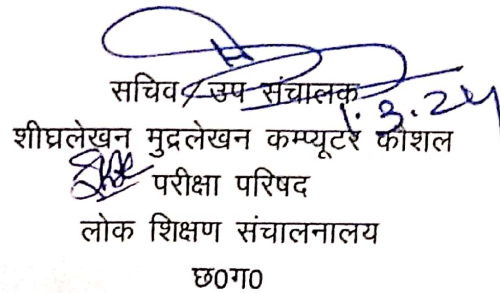 सचिव/उप संचालक
1.3.24
शीघ्रलेखन मुद्रलेखन कम्प्यूटर कौशल
परीक्षा परिषद
लोक शिक्षण संचालनालय
छ0ग0